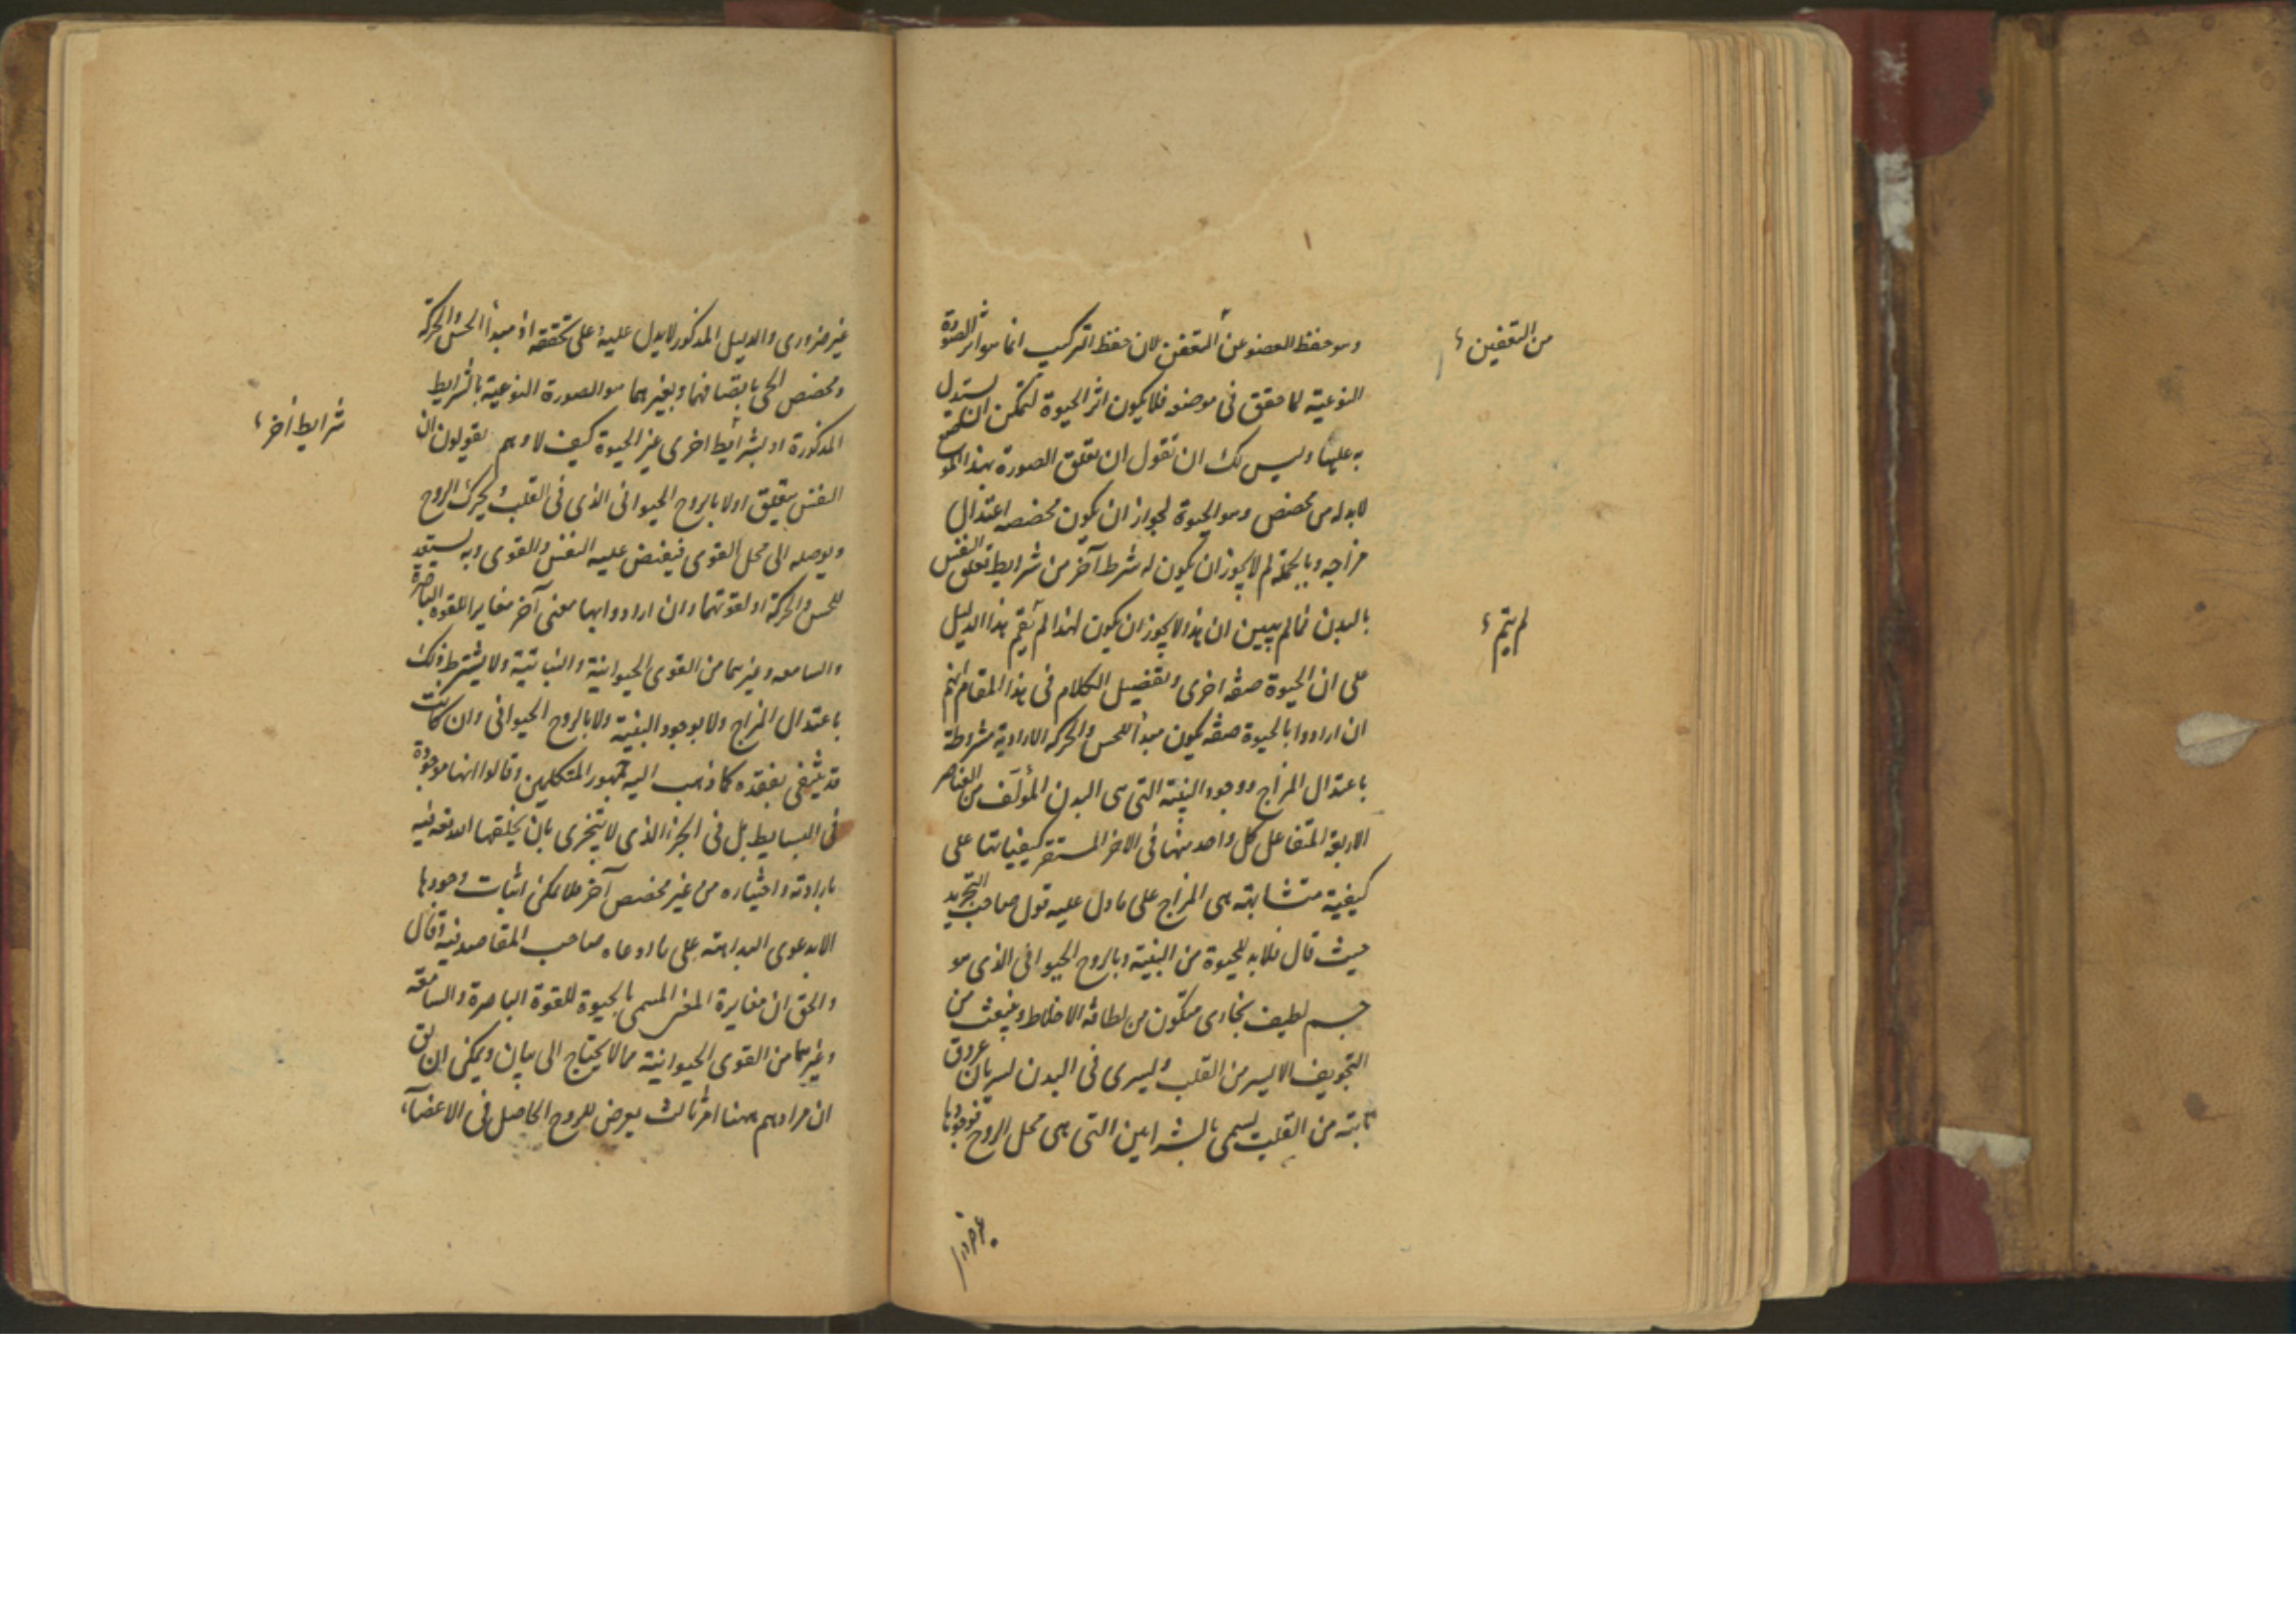 وهو حفظ العضو عن التعفن لان حفظ التركيب انما هو اثر الصورة
من التعفين
النوعية لما حقق فى موضعه فلا يكون اثر الحيوة لتمكن ان يستدل
به عليها وليس لك ان تقول ان تعلق الصورة بهذا الموضع
لابد له من مخصص وهو الحيوة لجواز ان يكون مخصصه اعتدال
مزاجه وبالجملة لم لا يجوز ان يكون له شرط آخر من شرايط تعلق النفس
بالبدن فمالم يبين ان هذا لا يجوز ان يكون لهذا لم يقم هذا الدليل
لم يتم
على ان الحيوة صفة اخرى وتفصيل الكلام فى هذا المقام انهم
ان ارادوا بالحيوة صفة يكون مبدأ للحس والحركة الارادية مشروطة
باعتدال المزاج ووجود البنية التى هى البدن المؤلف من العناصر
الاربعة المتفاعل كل واحد منها فى الاخر المستقر كيفياتها على
كيفية متشابهة هى المزاج على ما دل عليه قول صاحب التجريد
حيث قال فلابد للحيوة من البنية وبالروح الحيوانى الذى هو
جسم لطيف بخارى متكون من لطافة الاخلاط وينبعث من
التجويف الايسر من القلب ويسرى فى البدن لسريان عروق
نابتة من القلب يسمى بالشرايين التى هى محل الروح فوجودها
غير ضرورى والدليل المذكور لا يدل عليه وعلى تحققه اذ مبدأ الحس والحركة
ومخصص الحى باتصافهما وبغيرهما هو الصورة النوعية بالشرايط
المذكورة او بشرايط اخرى غير الحيوة كيف لا وهم يقولون ان
شرايط أخر
النفس يتعلق اولا بالروح الحيوانى الذى فى القلب ويحرك الروح
ويوصله الى محل القوى فيفيض عليه النفس والقوى وبه يستعد
للحس والحركة او لقوتهما وان ارادوا بها معنى آخر مغايرا للقوة الباصرة
والسامعه وغيرهما من القوى الحيوانية والنباتية ولا يشترط ذلك
باعتدال المزاج ولا بوجود البنية ولا بالروح الحيوانى وان كانت
قد ينتفى بفقده كما ذهب اليه جمهور المتكلمين وقالوا انها موجودة
فى البسايط بل فى الجزء الذى لا يتجزى بان يخلقها الله تعه فيه
بارادته واختياره من غير مخصص آخر فلا يمكن اثبات وجودها
الا بدعوى البداهة على ما ادعاه صاحب المقاصد فيه وقال
والحق ان مغايرة المعنى المسمى بالحيوة للقوة الباصرة والسامعة
وغيرهما من القوى الحيوانية مما لا يحتاج الى بيان ويمكن ان يق
ان مرادهم ههنا امر ثالث يعرض للروح الحاصل فى الاعضاء